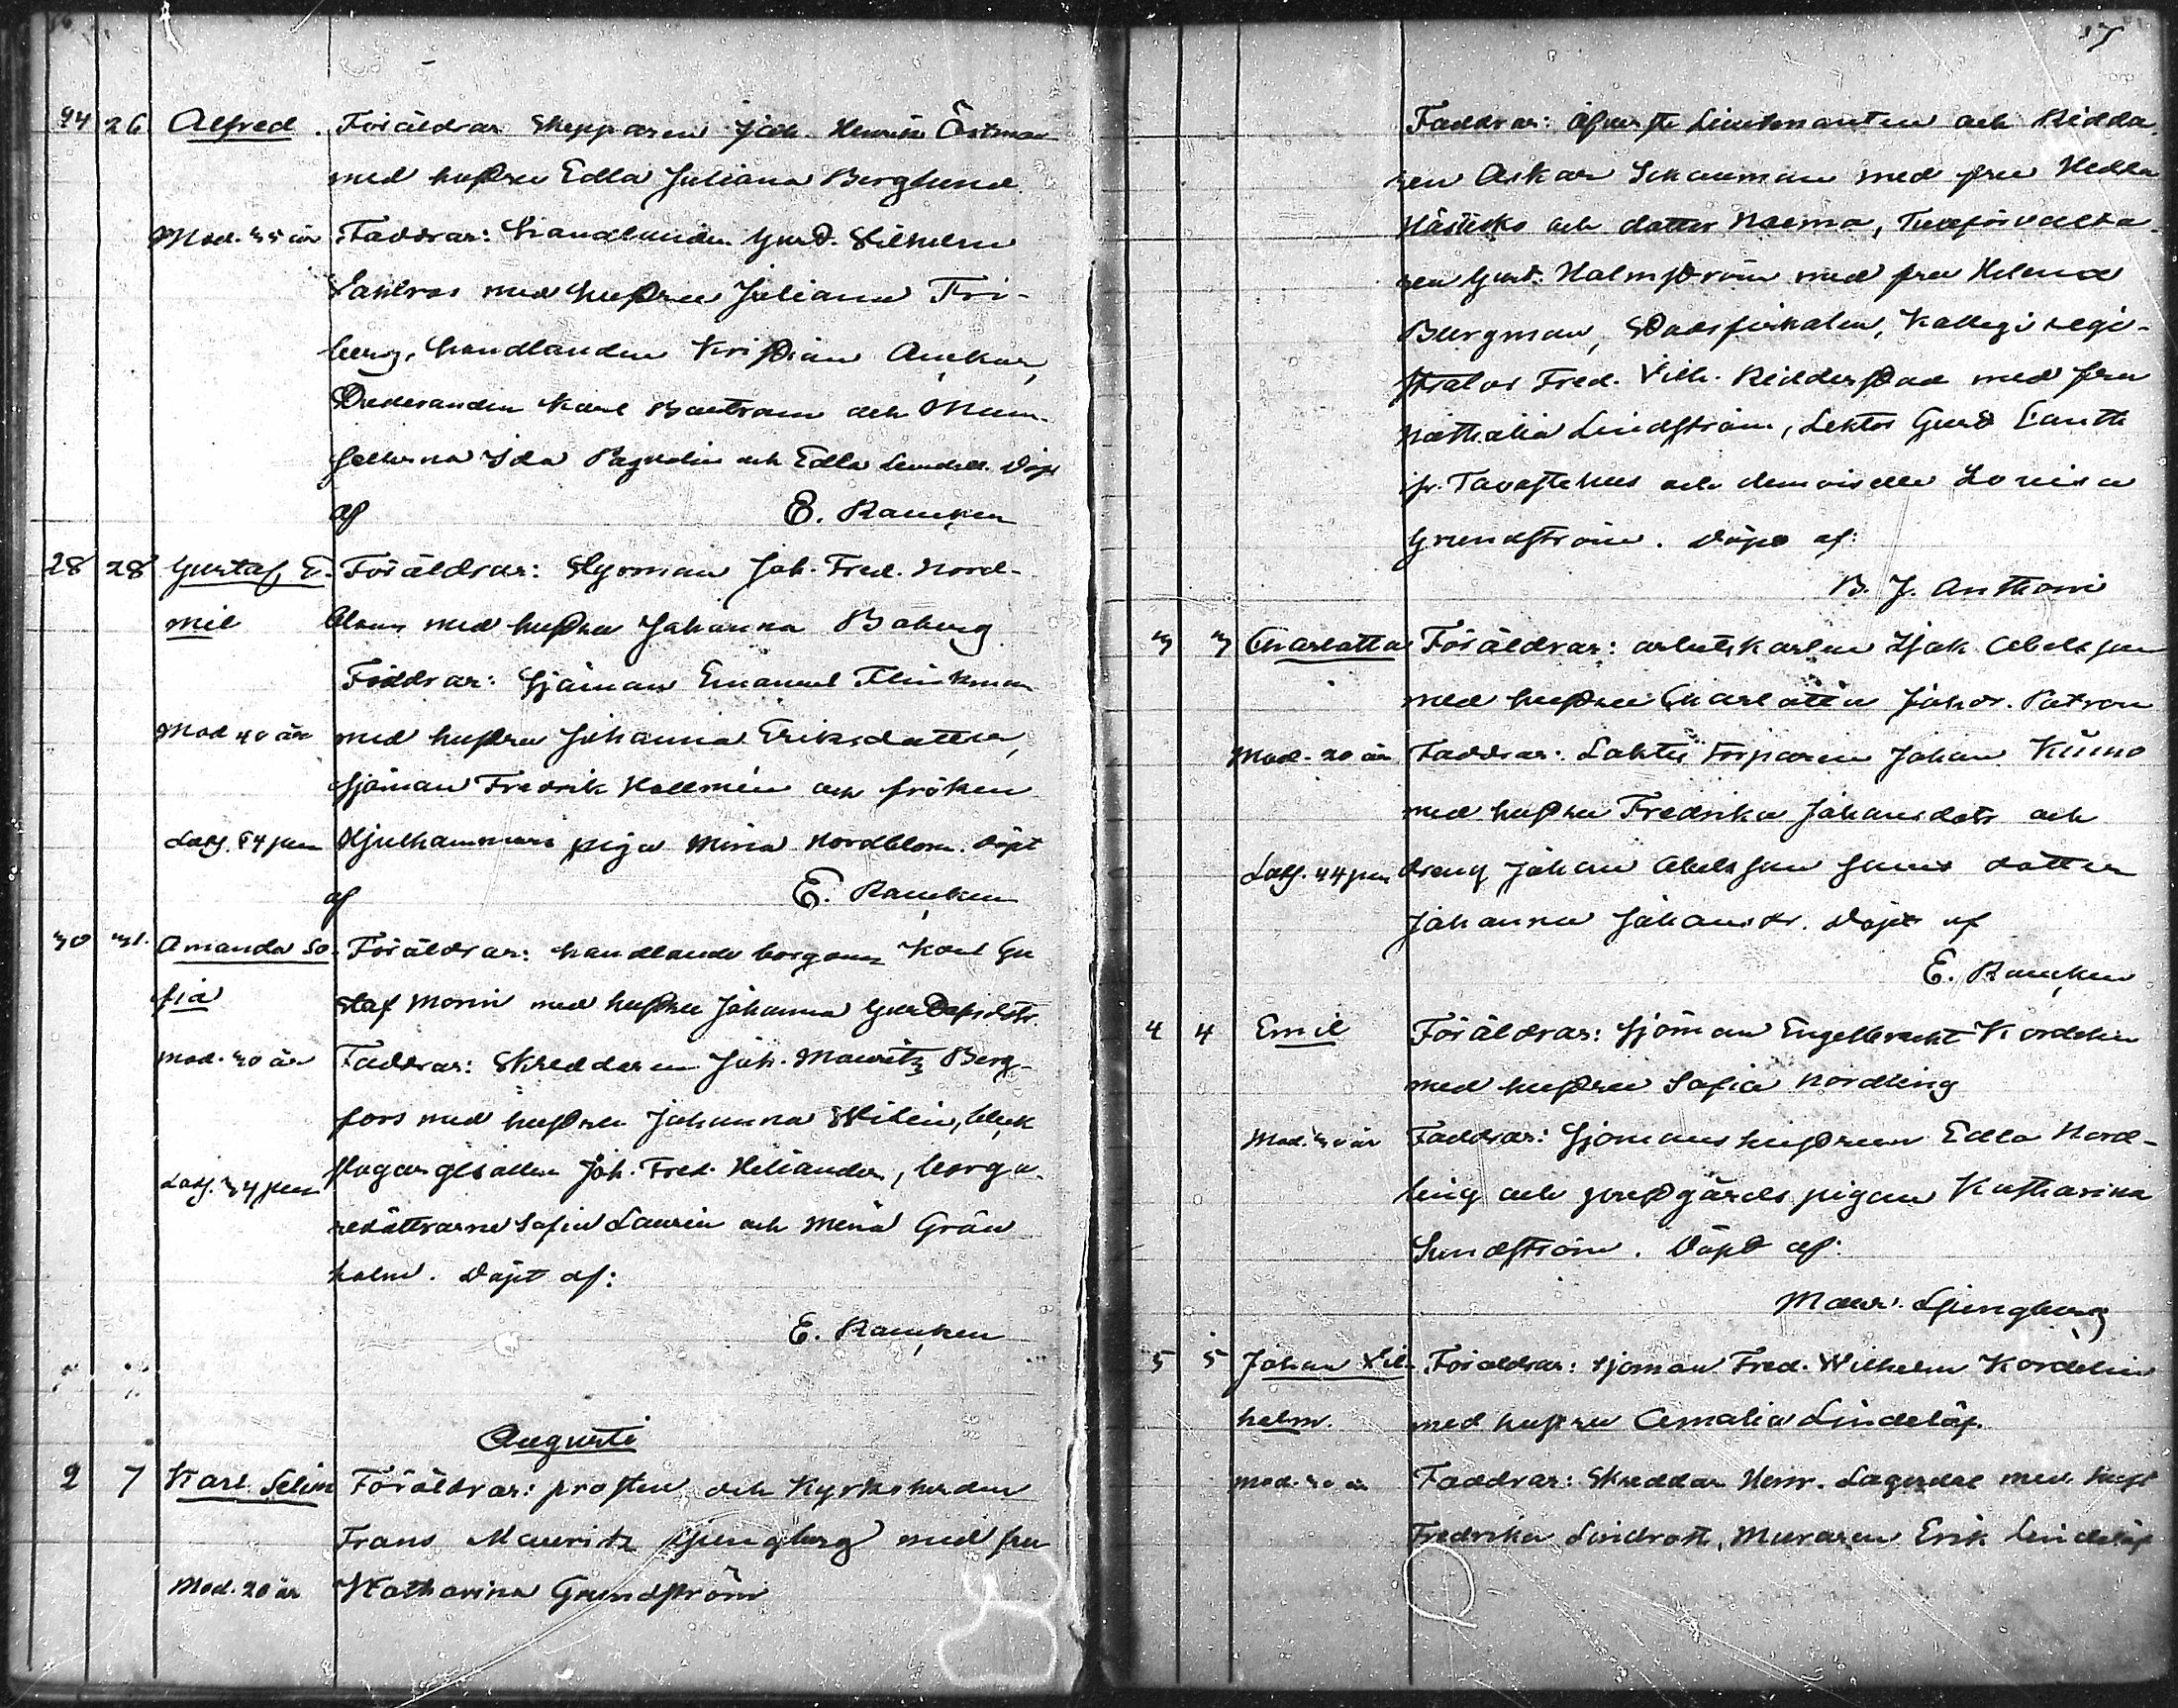 94 26 Alfred. Föräldrar Skepparen Joh. Henrik Östman
med hustru Edla Juliana Berglund
Mod. 35 år Faddrar: Handlanden Gust. Vilhelm
med hustru Juliana Fri-
berg, handlanden Kristian
Studeranden Karl Bastram och Mam-
sellerna Ida och Edla Döpt
af E. Rancken
28 28 Gustaf E- Föräldrar: Styrman Joh. Fred. Nord-
mil blom med hustru Johanna Boberg
Faddrar: Sjöman Emanuel Flinkman
Mod 40 år med hustru Johanna Eriksdotter,
sjöman Fredrik Hollmén och fröken
Hjulhammars piga Mina Nordblom. Döpt
af E. Rancken
30 31. Amanda So- Föräldrar: handlande borgaren Karl Gu
fia staf Morin med hustru Johanna Gustafsdotr.
Mod. 30 år Faddrar: Skreddaren Joh. Mauritz Berg-
fors med hustru Johanna Widén, bleck
slagargesällen Joh. Fred. Heliander, borga
redöttrarne Sofia Laurin och Mina Grän
holm. Döpt af:
E. Rancken
Augusti
2 7 Karl Selim Föräldrar: prosten och Kyrkoherden
Frans Mauritz Ljungberg med fru
Mod. 20 år Katharina Grundström
17
Faddrar: Öfverste Lieutenanten och Ridda
ren Oskar Schauman med fru Hedda
Hästesko och dotter Naema, Tullförvalta-
ren Gust. Holmström med fru Helena
Bergman, Stadsfiskalen, Kollegi regi-
strator Fred. Vilh. Ridderstad med fru
Nathalia Lindström, Lektor Gust
ifr. Tavastehus och demoiselle Lovisa
Grundström. Döpt af:
B. J. Anthoni
3 3 Charlotta Föräldrar: arbetskarlen Isak Abelsson
med hustru Charlotta Johdr. Patron
Mod. 20 år Faddrar: Torparen Johan
med hustru Fredrika Johansdotr och
dreng Johan Abelsson samt dotter
Johanna Johansdr. Döpt af
E. Rancken
4 4 Emil Föräldrar: Sjöman Engelbrecht Kordelin
med hustru Sofia Nordling
Mod. 30 år Faddrar: Sjömans hustrun Edla Nord-
ling och prestgårds pigan Katharina
Sundström. Döpt af:
Maur. Ljungberg
5 5 Johan Vil- Föräldrar: sjöman Fred. Wilhelm Kordelin
helm. med hustru Amalia Lindelöf.
Mod. 30 år Faddrar: Skreddar Henr. Lagerdal med hust
Fredrika Lindroth, Muraren Erik Lindelöf